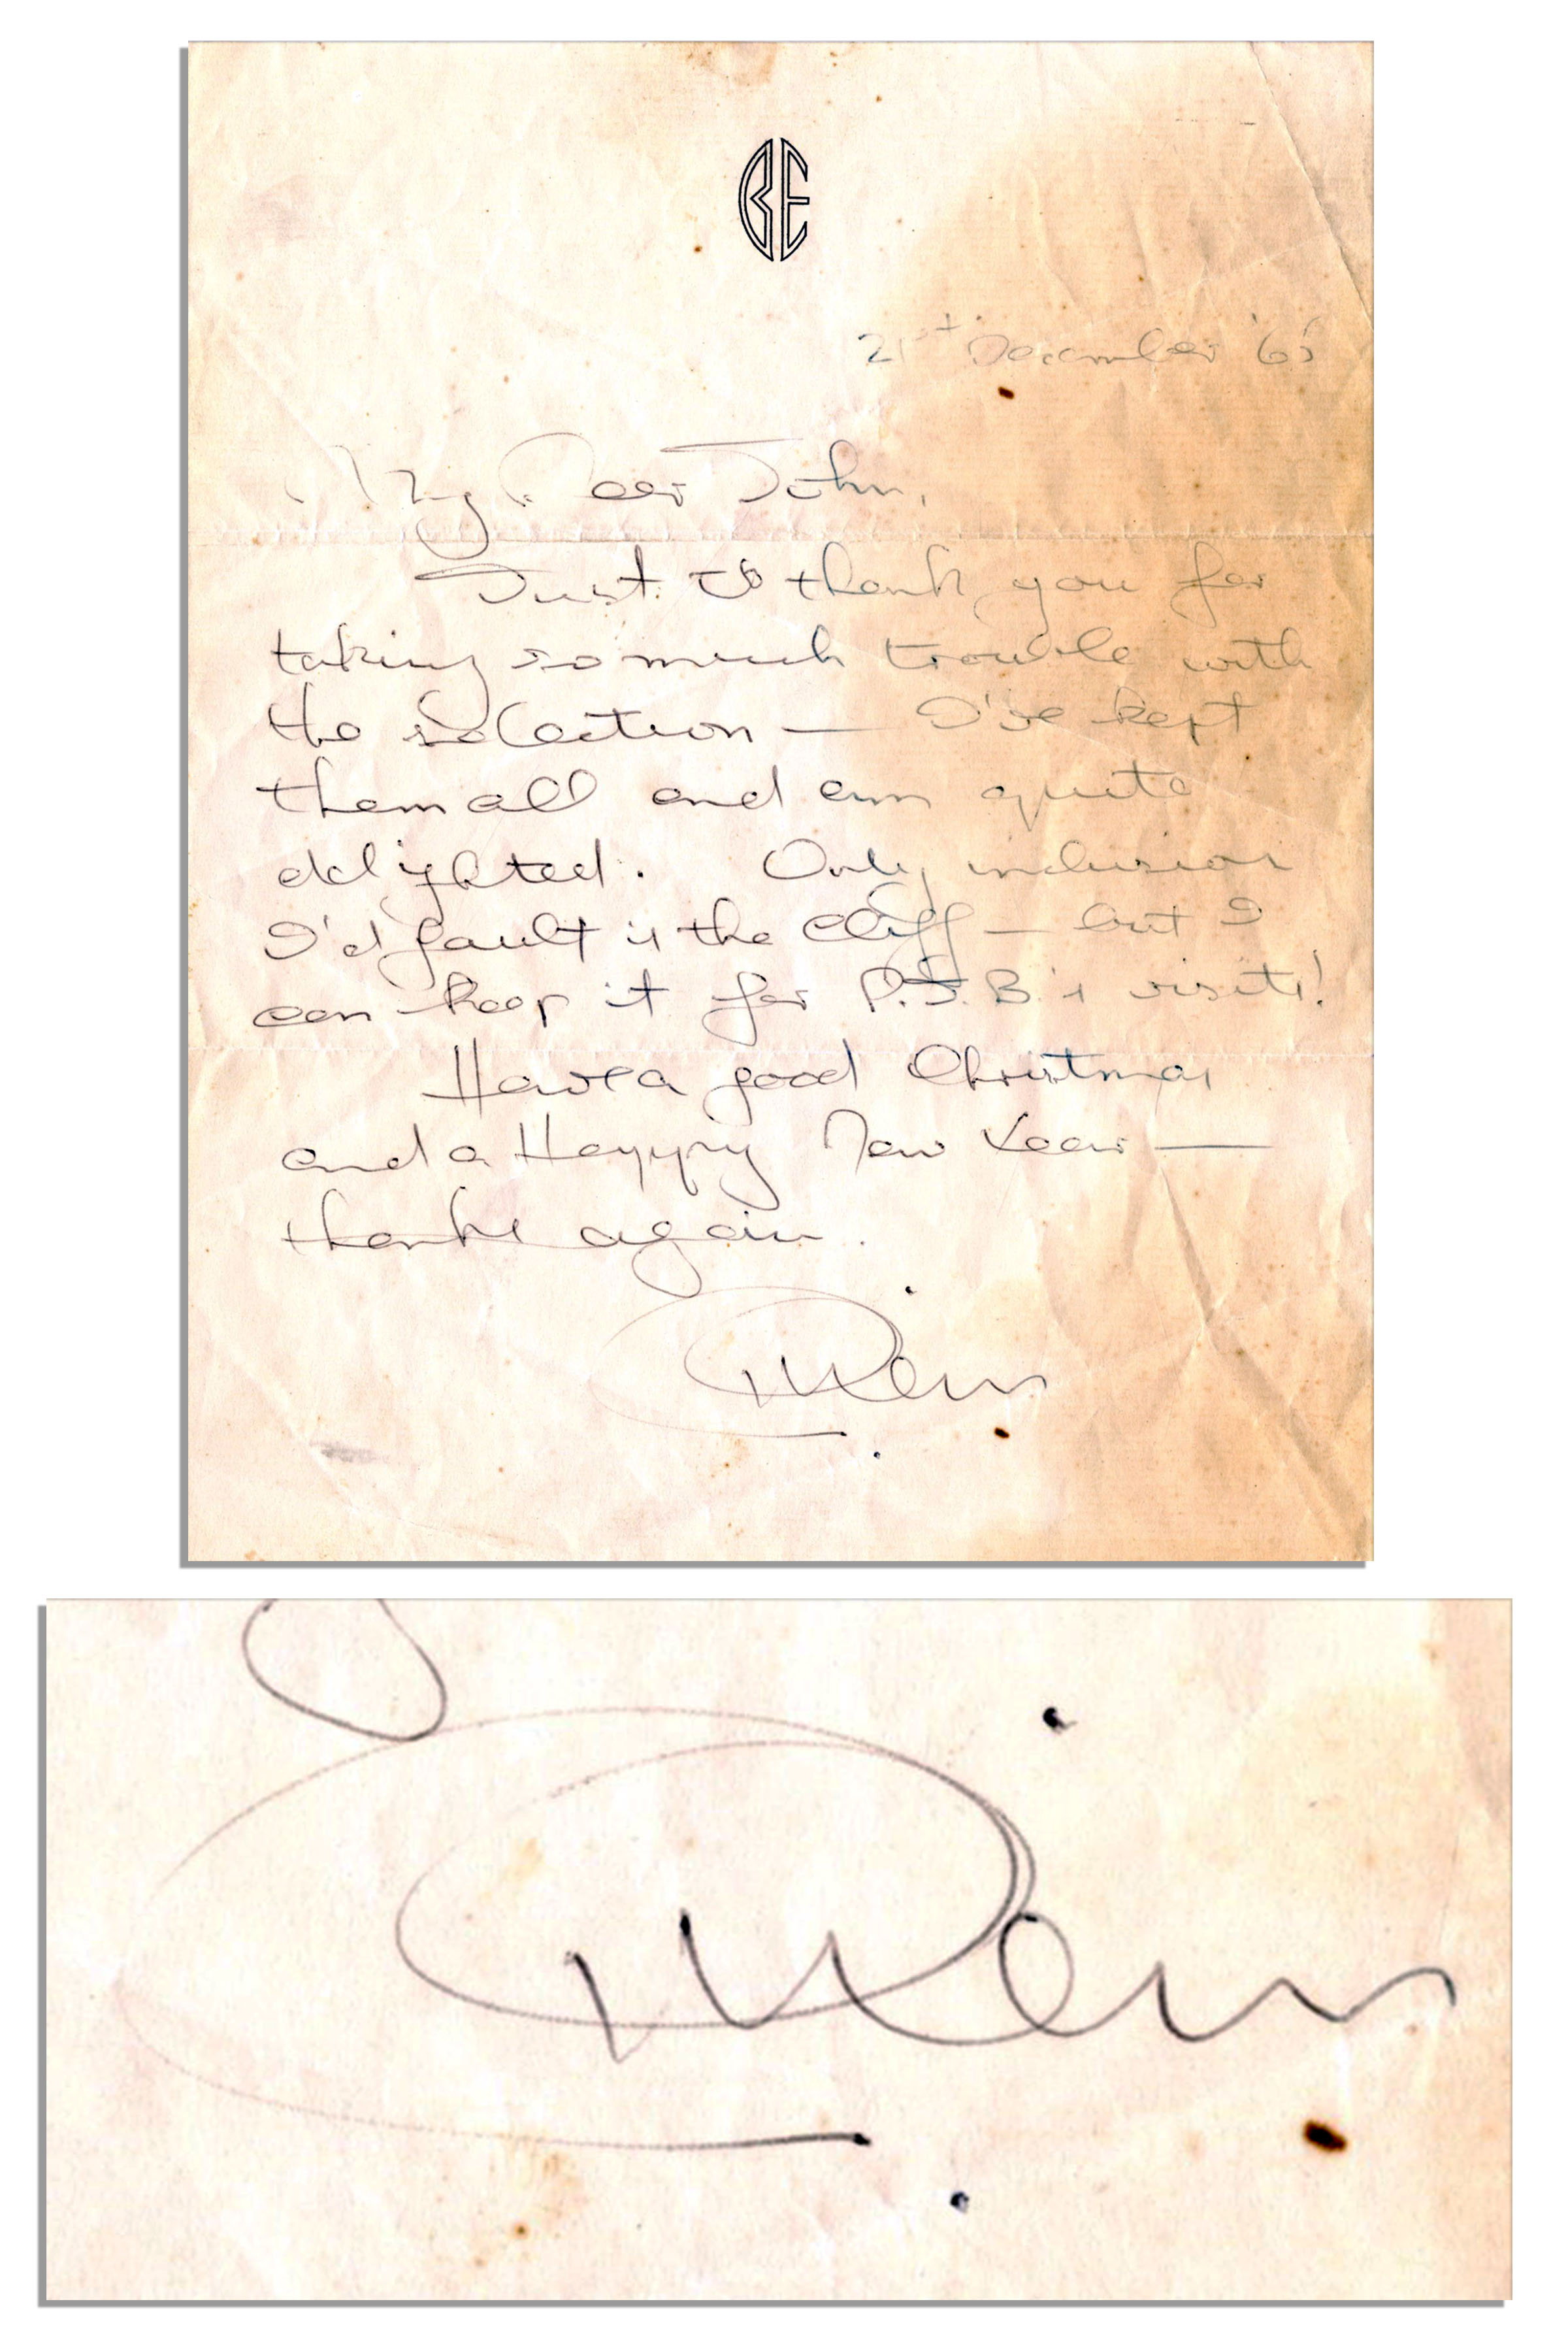 BE
21st December '65
My Dear John,
Just to thank you for
taking so much trouble with
the selection — I've kept
them all and am quite
delighted. Only inclusion
I'd fault is the Cliff — but I
can keep it for P.J.B.'s visits!
Have a good Christmas
and a Happy New Year —
thanks again.
Brian
Brian